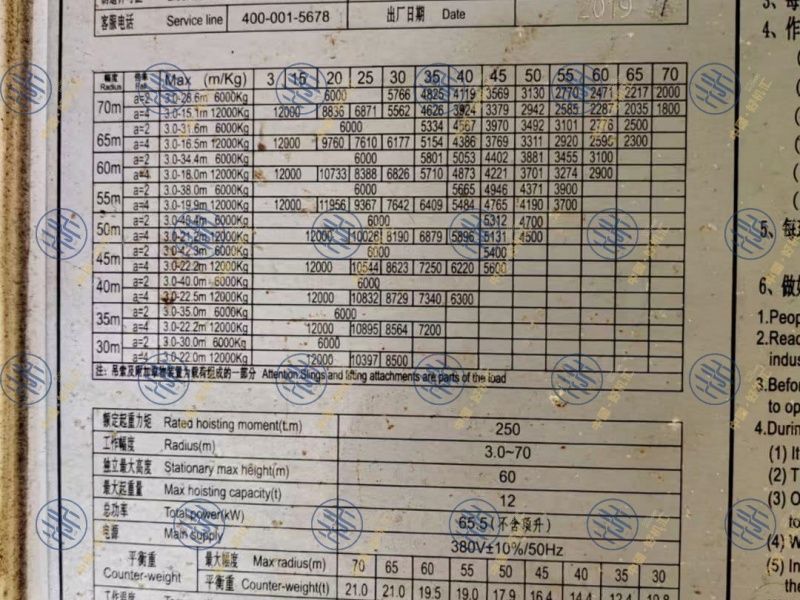 客服电话 Service line 400-001-5678 出厂日期 Date 2019
幅度 Radius 倍率 Max (m/Kg) 3 15 20 25 30 35 40 45 50 55 60 65 70
70m a=2 3.0-28.6m 6000Kg 6000 5766 4825 4119 3569 3130 2770 2471 2217 2000
a=4 3.0-15.1m 12000Kg 12000 8836 6871 5562 4626 3924 3379 2942 2585 2287 2035 1800
65m a=2 3.0-31.6m 6000Kg 6000 5334 4567 3970 3492 3101 2776 2500
a=4 3.0-16.5m 12000Kg 12000 9760 7610 6177 5154 4386 3769 3311 2920 2595 2300
60m a=2 3.0-34.4m 6000Kg 6000 5801 5053 4402 3881 3455 3100
a=4 3.0-18.0m 12000Kg 12000 10733 8388 6826 5710 4873 4221 3701 3274 2900
55m a=2 3.0-38.0m 6000Kg 6000 5665 4946 4371 3900
a=4 3.0-19.9m 12000Kg 12000 11956 9367 7642 6409 5484 4765 4190 3700
50m a=2 6000Kg 6000 5312 4700
a=4 3.0-21.2m 12000Kg 12000 10026 8190 6879 5896 5131 4500
45m a=2 3.0-42.3m 6000Kg 6000 5400
a=4 3.0-22.2m 12000Kg 12000 10544 8623 7250 6220 5600
40m a=2 3.0-40.0m 6000Kg 6000
a=4 3.0-22.5m 12000Kg 12000 10832 8729 7340 6300
35m a=2 3.0-35.0m 6000Kg 6000
a=4 3.0-22.2m 12000Kg 12000 10895 8564 7200
30m a=2 3.0-30.0m 6000Kg 6000
a=4 3.0-22.0m 12000Kg 12000 10397 8500
注：吊索及附加拿物装置为载荷组成的一部分 Attention:Slings and lifting attachments are parts of the load
额定起重力矩 Rated hoisting moment(t.m) 250
工作幅度 Radius(m) 3.0~70
独立最大高度 Stationary max height(m) 60
最大起重量 Max hoisting capacity(t) 12
总功率 Total power(kW) 65.5(不含顶升)
电源 Main supply 380V±10%/50Hz
平衡重 Counter-weight 最大幅度 Max radius(m) 70 65 60 55 50 45 40 35 30
平衡重 Counter-weight(t) 21.0 21.0 19.5 19.0 17.9 16.4 14.4 12.4 10.8
3、每
4、作
5、每
6、做好
1.Peop
2.Read
indus
3.Before
to op
4.During
(1) It
(2) T
(3) O
to
(4) W
(5) In
the